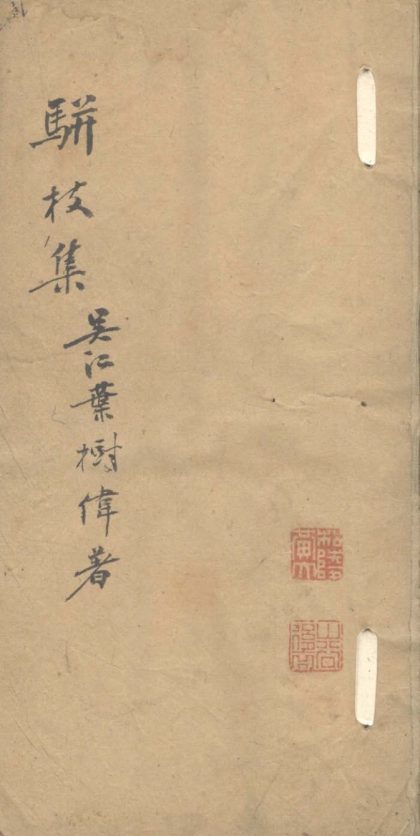 駢枝集
吳江葉樹偉著